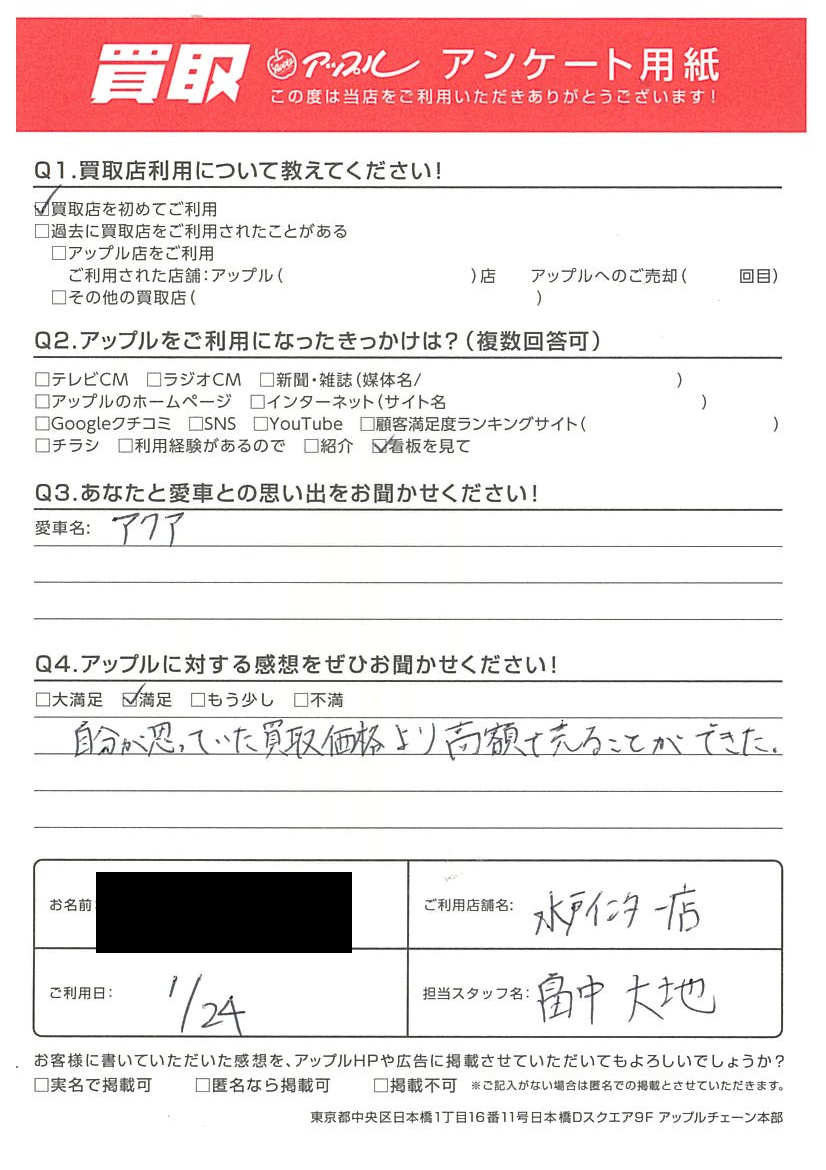 買取 アップル アンケート用紙
この度は当店をご利用いただきありがとうございます!
Q1.買取店利用について教えてください!
☑買取店を初めてご利用
□過去に買取店をご利用されたことがある
□アップル店をご利用
ご利用された店舗:アップル( )店 アップルへのご売却( 回目)
□その他の買取店( )
Q2.アップルをご利用になったきっかけは?(複数回答可)
□テレビCM □ラジオCM □新聞・雑誌(媒体名/ )
□アップルのホームページ □インターネット(サイト名 )
□Googleクチコミ □SNS □YouTube □顧客満足度ランキングサイト( )
□チラシ □利用経験があるので □紹介 ☑看板を見て
Q3.あなたと愛車との思い出をお聞かせください!
愛車名: アクア
Q4.アップルに対する感想をぜひお聞かせください!
□大満足 ☑満足 □もう少し □不満
自分が思っていた買取価格より高額で売ることができた。
お名前:
ご利用店舗名: 水戸インター店
ご利用日: 1/24
担当スタッフ名: 畠中 大地
お客様に書いていただいた感想を、アップルHPや広告に掲載させていただいてもよろしいでしょうか?
□実名で掲載可 □匿名なら掲載可 □掲載不可 ※ご記入がない場合は匿名での掲載とさせていただきます。
東京都中央区日本橋1丁目16番11号日本橋Dスクエア9F アップルチェーン本部